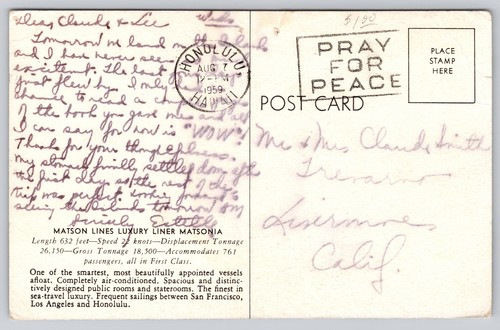 Dear Claude & Lee Weds.
Tomorrow we land
and I have never seen
The last
just flew by. I only
chance to read a couple
of the book you gave me and all
I can say for now is "WOW"!
Thanks for your thoughtfulness.
my stomach finally settled down after
the first day so the rest of the
trip was perfect. Looking forward to
seeing the Islands tomorrow
Sincerely, Estelle
MATSON LINES LUXURY LINER MATSONIA
Length 632 feet—Speed 22 knots—Displacement Tonnage
26,150—Gross Tonnage 18,500—Accommodates 761
passengers, all in First Class.
One of the smartest, most beautifully appointed vessels
afloat. Completely air-conditioned. Spacious and distinc-
tively designed public rooms and staterooms. The finest in
sea-travel luxury. Frequent sailings between San Francisco,
Los Angeles and Honolulu.
HONOLULU
AUG
1959
HAWAII
PRAY
FOR
PEACE
PLACE
STAMP
HERE
POST CARD
Mr & Mrs Claude Smith
Trevarno
Livermore
Calif.